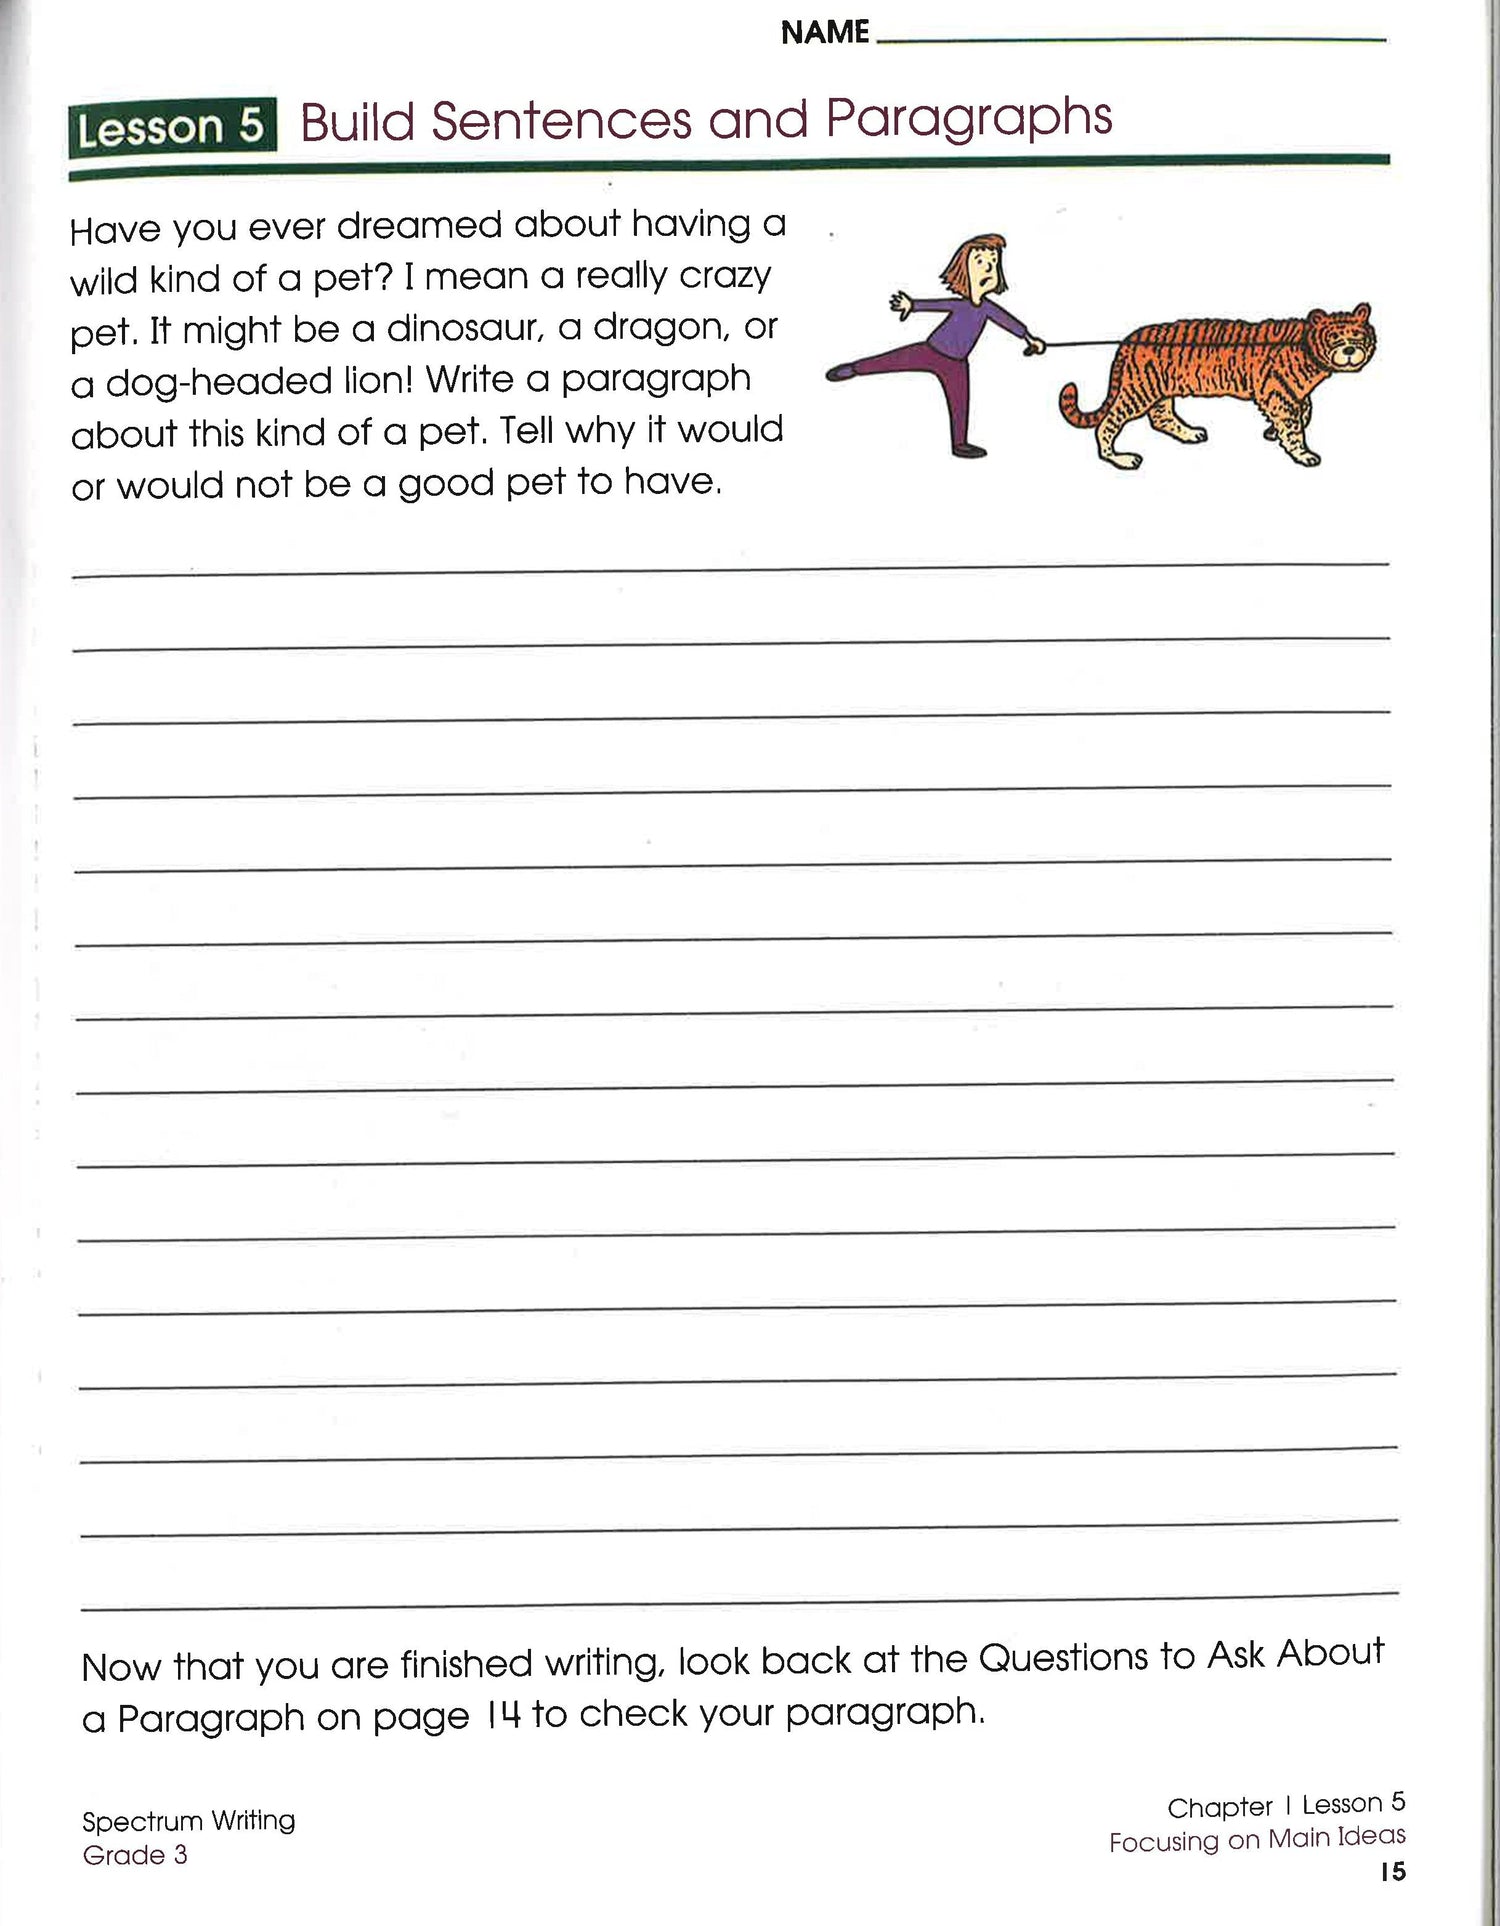 NAME
Lesson 5 Build Sentences and Paragraphs
Have you ever dreamed about having a
wild kind of a pet? I mean a really crazy
pet. It might be a dinosaur, a dragon, or
a dog-headed lion! Write a paragraph
about this kind of a pet. Tell why it would
or would not be a good pet to have.
Now that you are finished writing, look back at the Questions to Ask About
a Paragraph on page 14 to check your paragraph.
Spectrum Writing
Grade 3
Chapter 1 Lesson 5
Focusing on Main Ideas
15